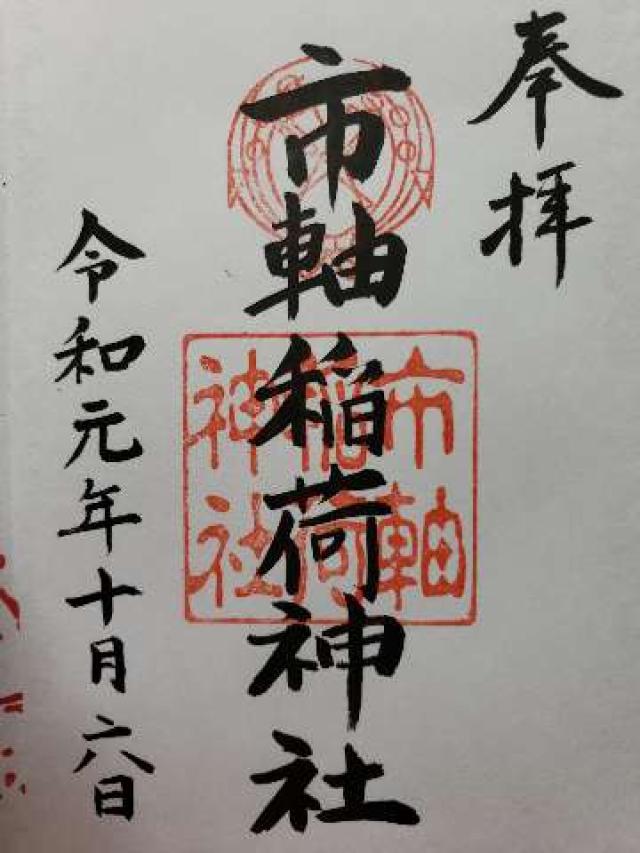 奉拝
市軸稲荷神社
市軸
稲荷
神社
令和元年十月六日